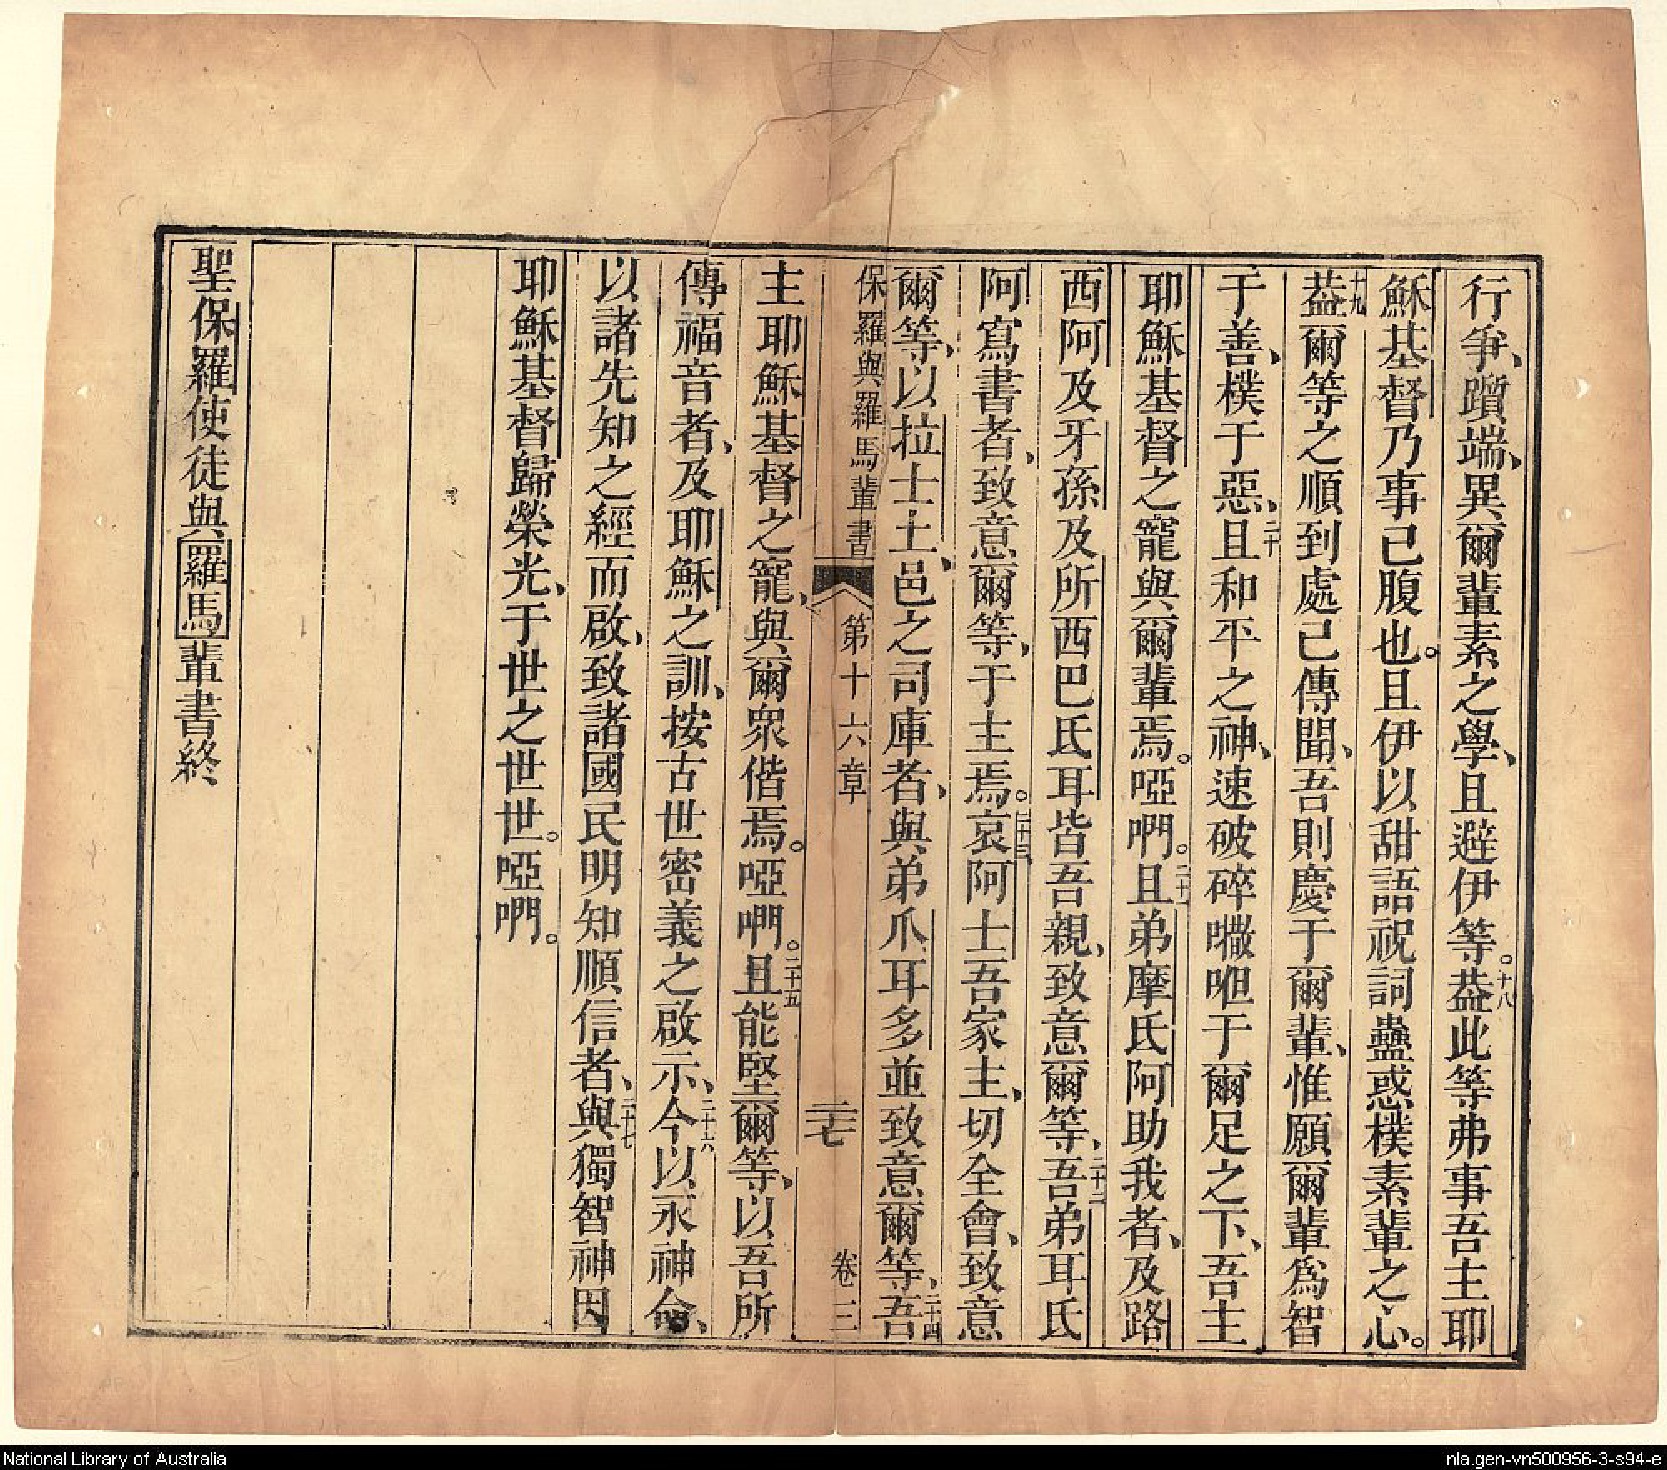 行爭、躓端、異爾輩素之學、且避伊等。十八葢此等弗事吾主耶
穌基督乃事己腹也。且伊以甜語祝詞蠱惑樸素輩之心。
十九葢爾等之順到處已傳聞、吾則慶于爾輩、惟願爾輩為智
于善、樸于惡、二十且和平之神、速破碎㘔咀于爾足之下、吾主
耶穌基督之寵與爾輩焉。啞吶。二十一且弟摩氏阿助我者、及路
西阿及牙孫及所西巴氏耳皆吾親、致意爾等、二十二吾弟耳氏
阿寫書者、致意爾等、于主焉。二十三哀阿士吾家主、切全會、致意
爾等、以拉士土、邑之司庫者、與弟爪耳多並致意爾等、二十四吾
保羅與羅馬輩書 第十六章 二十七 卷三
主耶穌基督之寵、與爾眾偕焉。啞吶。二十五且能堅爾等、以吾所
傳福音者、及耶穌之訓、按古世密義之啟示、二十六今以永神命、
以諸先知之經而啟、致諸國民明知順信者、二十七與獨智神因
耶穌基督歸榮光、于世之世世。啞吶。
聖保羅使徒與羅馬輩書終
National Library of Australia
nla.gen-vn500956-3-s94-e